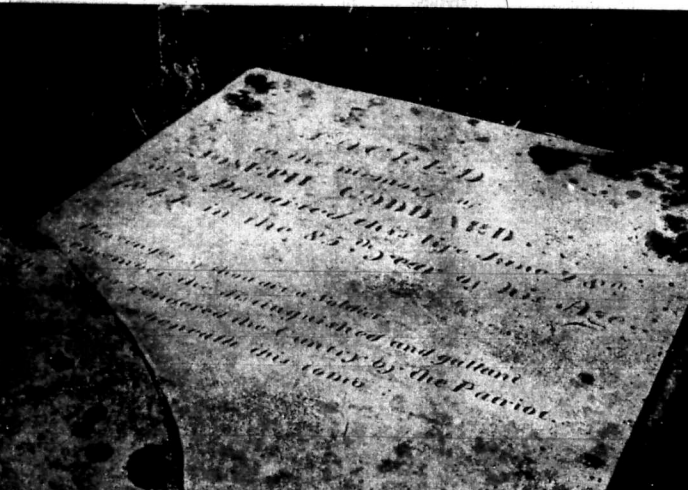 SACRED
to the memory of
JOSEPH GODDARD.
who Departed this life June
in the 85th Year of his Age
the distinguished and gallant
rendered the Country by the Patriot.
beneath this tomb